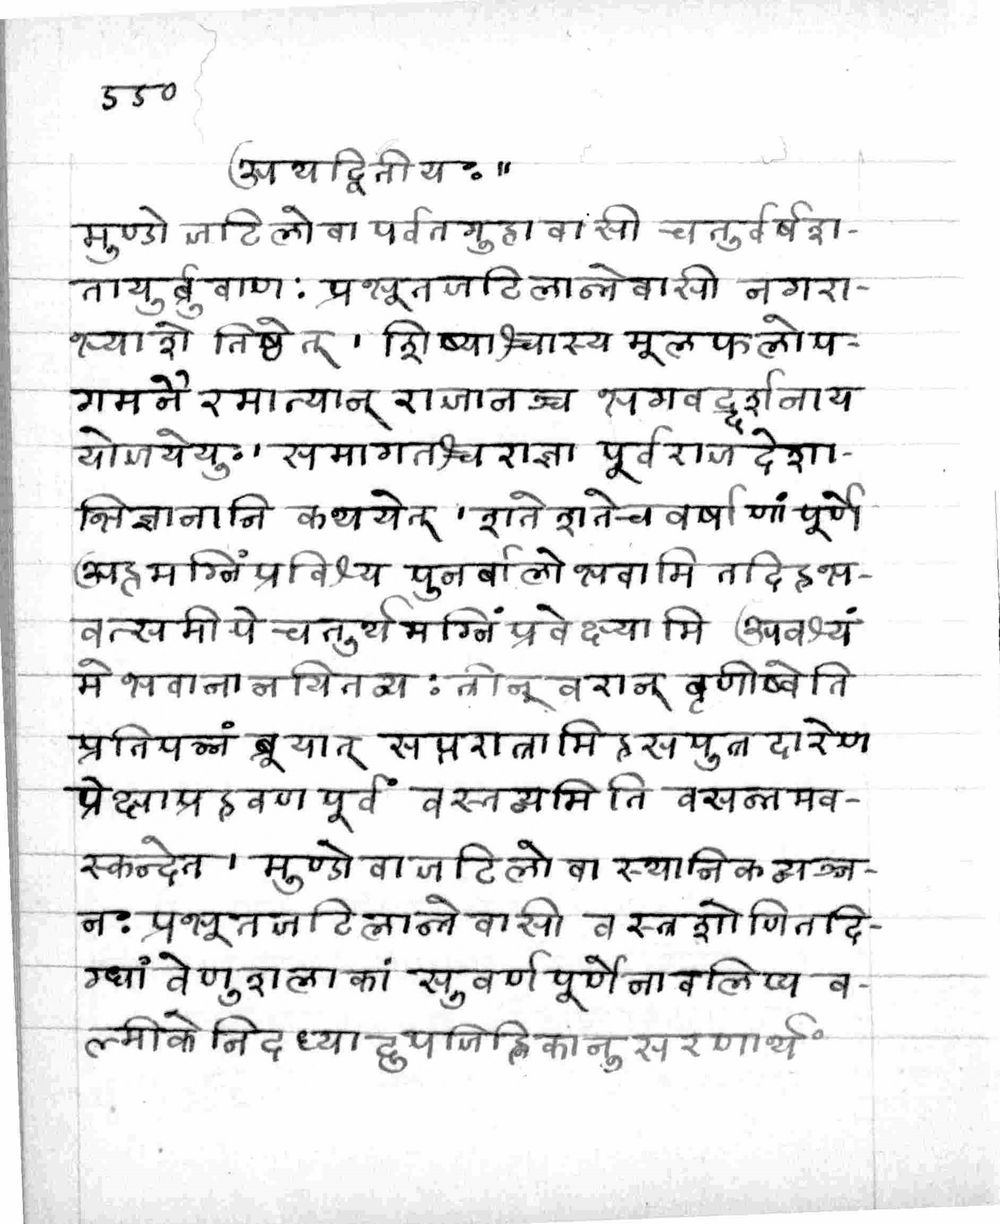 ५५०
अथद्वितीयः॥
मुण्डो जटिलो वा पर्वतगुहावासी चतुर्वर्षश-
तायुर्ब्रुवाणः प्रभूतजटिलान्तेवासी नगरा-
भ्याशे तिष्ठेत् । शिष्याश्चास्य मूलफलोप-
गमनैरमात्यान् राजानञ्च भगवद्दर्शनाय
योजयेयुः । समागतश्च राज्ञा पूर्वराजदेशा-
भिज्ञानानि कथयेत् । शते शते च वर्षाणां पूर्णे
अहमग्निं प्रविश्य पुनर्बालो भवामि तदिह भ-
वत्समीपे चतुर्थमग्निं प्रवेक्ष्यामि अवश्यं
मे भवानानयितव्यः त्रीन् वरान् वृणीष्वेति
प्रतिपन्नं ब्रूयात् सप्तरात्रामिह सपुत्रदारेण
प्रेक्षाप्रहवणपूर्वं वस्तव्यमिति वसन्तमव-
स्कन्देत । मुण्डो वा जटिलो वा स्थानिकव्यञ्ज-
नः प्रभूतजटिलान्तेवासी वस्त्रशोणितदि-
ग्धां वेणुशलाकां सुवर्णपूर्णेनावलिप्य व-
ल्मीके निदध्यादुपजिह्विकानुसरणार्थं